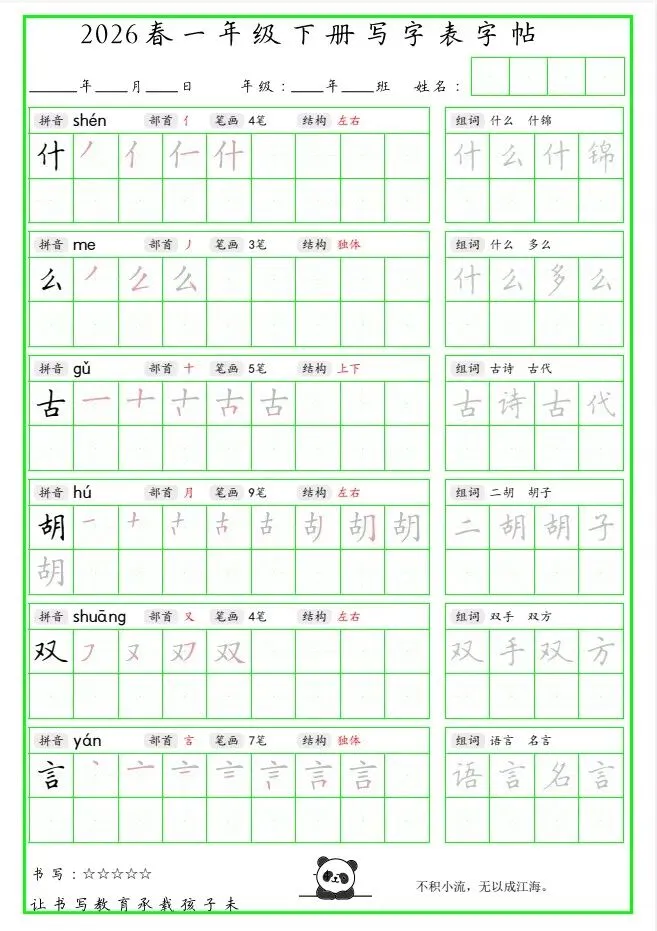 2026春一年级下册写字表字帖
____年____月____日 年级：____年____班 姓名：
拼音 shén 部首 亻 笔画 4笔 结构 左右 组词 什么 什锦
什 丿 亻 仁 什 什 么 什 锦
拼音 me 部首 丿 笔画 3笔 结构 独体 组词 什么 多么
么 丿 么 么 什 么 多 么
拼音 gǔ 部首 十 笔画 5笔 结构 上下 组词 古诗 古代
古 一 十 古 古 诗 古 代
拼音 hú 部首 月 笔画 9笔 结构 左右 组词 二胡 胡子
胡 一 十 古 古 胡 胡 二 胡 胡 子
胡
拼音 shuāng 部首 又 笔画 4笔 结构 左右 组词 双手 双方
双 フ 又 双 双 手 双 方
拼音 yán 部首 言 笔画 7笔 结构 独体 组词 语言 名言
言 丶 亠 言 语 言 名 言
书写：☆☆☆☆☆
不积小流，无以成江海。
让书写教育承载孩子未